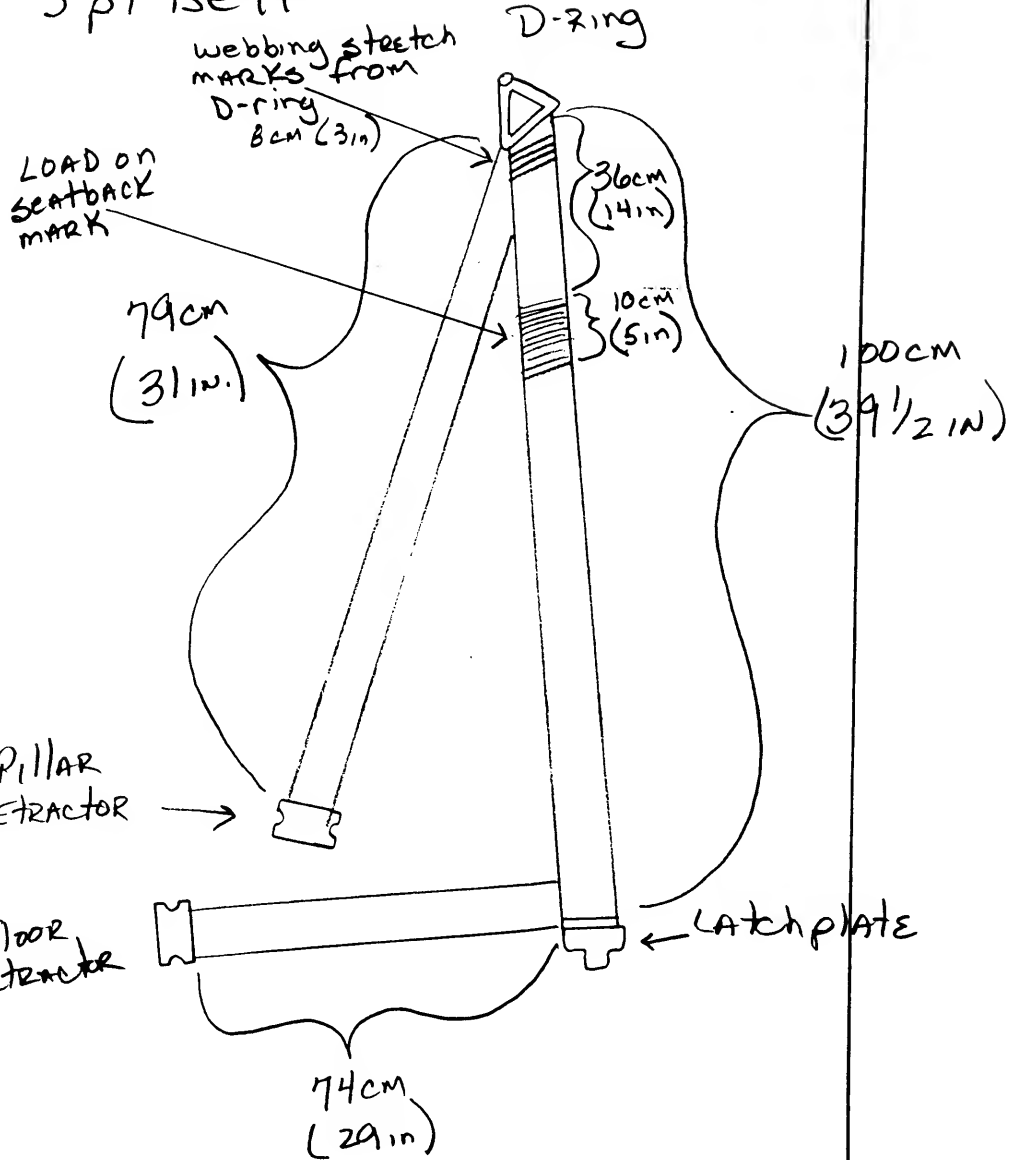 3pt Belt
D-Ring
webbing stretch
MARKS from
D-ring
8cm (3in)
LOAD on
seatback
MARK
36cm
(14in)
10cm
(5in)
79cm
(31 IN.)
100cm
(39 1/2 IN)
Pillar
ETRACTOR
loor
etractor
LAtchplate
74cm
(29in)